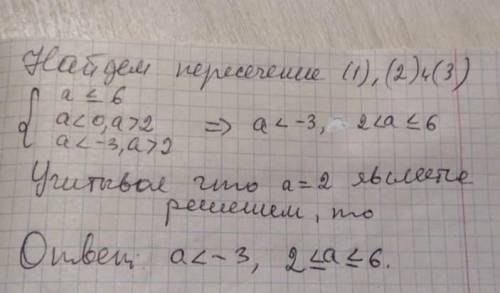 Найдем пересечение (1), (2) и (3)
{ a ≤ 6
a<0, a>2 => a<-3, 2<a≤6
a<-3, a>2
Учитывая что a=2 является
решением, то
Ответ: a<-3, 2≤a≤6.